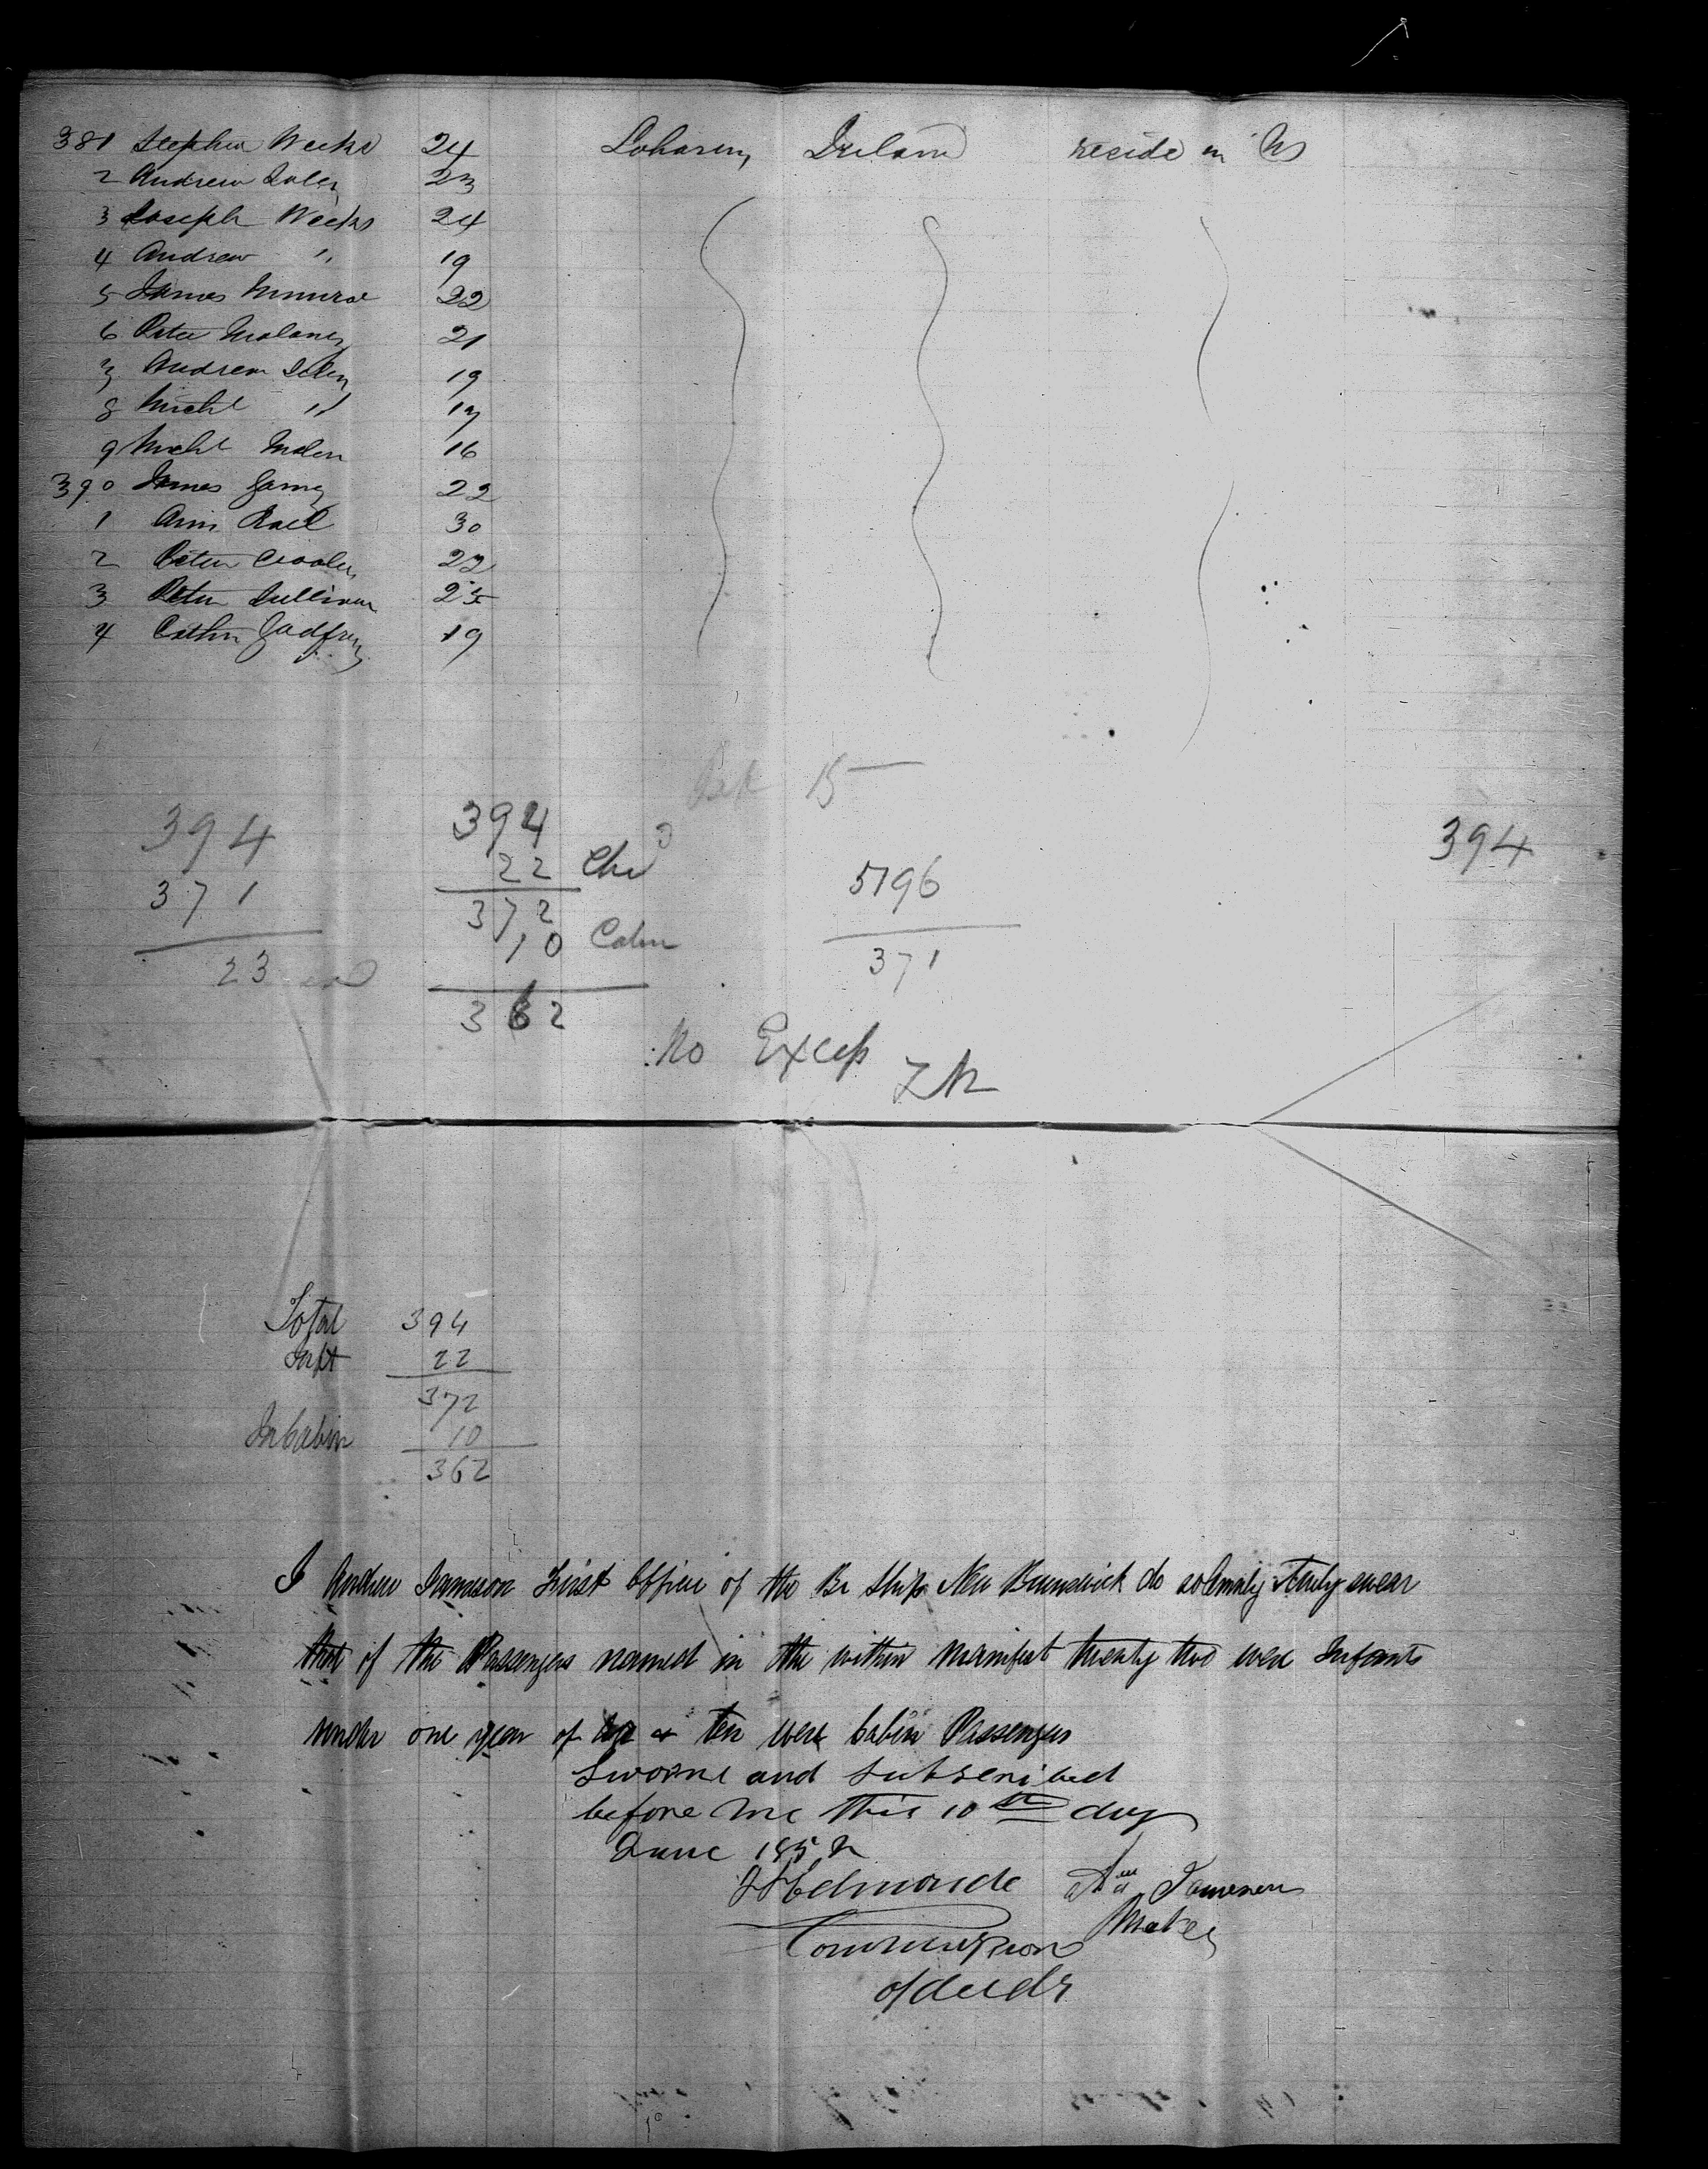 381 Stephen Weeks 24 Ireland reside in US
2 Andrew 23
3 Joseph Weeks 24
4 Andrew " 19
5 James Munroe 22
6 Peter Maloney 21
7 Andrew 19
8 Michl " 17
9 Michl 16
390 James 22
1 Ann 30
2 Peter 22
3 Peter Sullivan 25
4 Cathn Godfrey 19
15
394 394 394
371 22 Chi 5796
23 372 371
10 Cabin
362
No Excep
Total 394
Inft 22
372
In Cabin 10
362
I Andrew Jameson First Officer of the Br Ship New Brunswick do solemnly & truly swear
that of the Passengers named in the within Manifest twenty two were Infants
under one year of & ten were Cabin Passengers
Sworne and Subscribed
before me this 10th day
June 185
Edmonds Jameson
Mate
of deeds